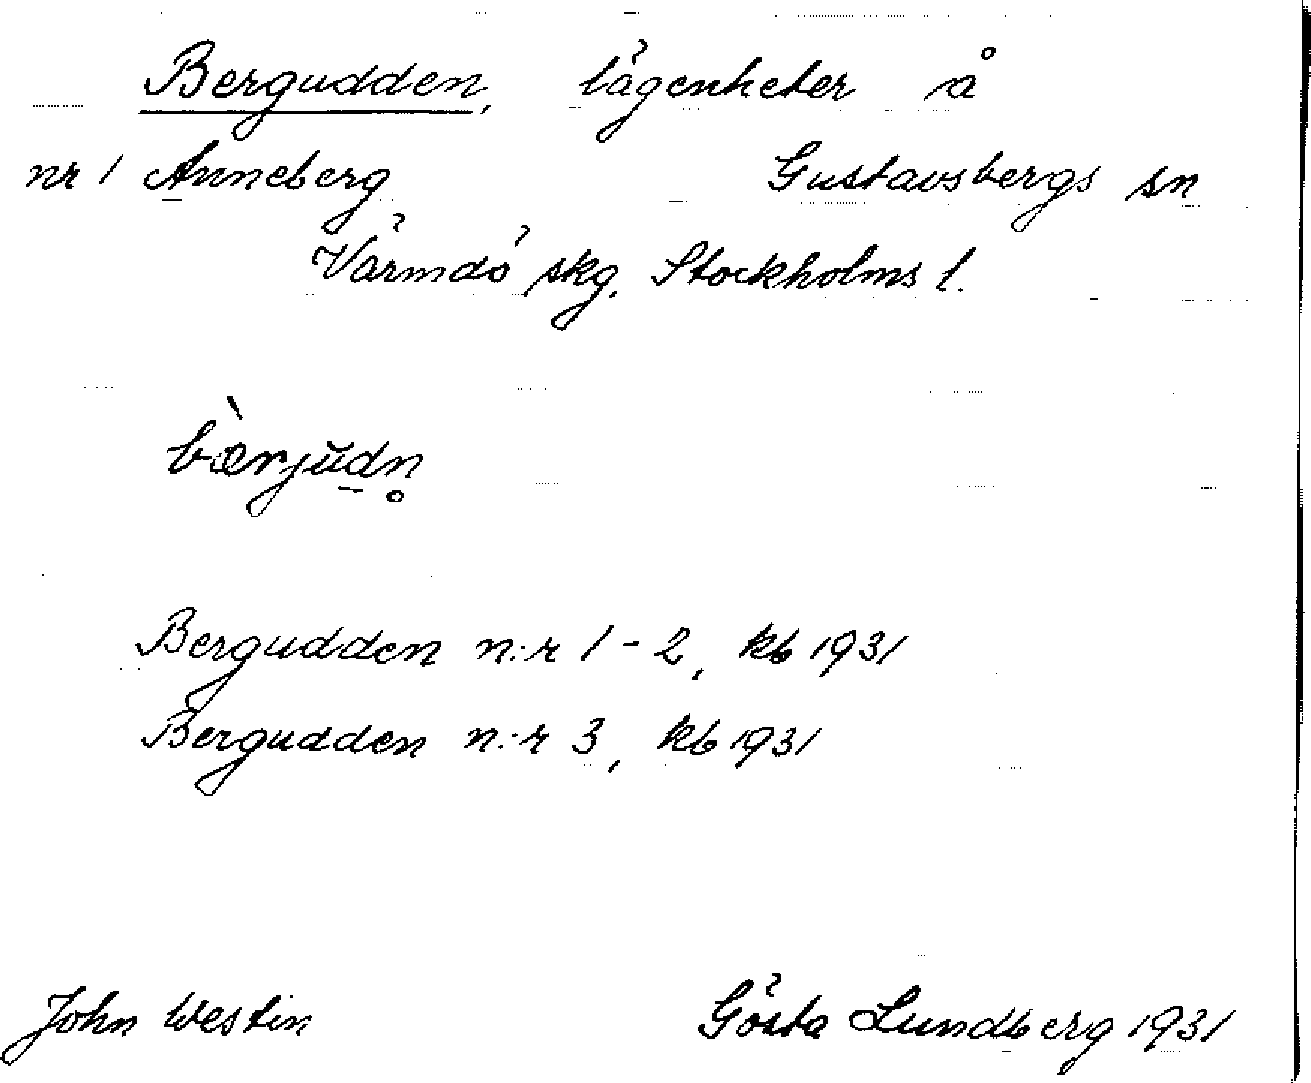 Bergudden, lägenheter å
nr 1 Anneberg Gustavsbergs sn
Värmdö skg. Stockholms l.
bæ̀rjŭdn̥
Bergudden n:r 1-2, kb 1931
Bergudden n:r 3, kb 1931
John Westin Gösta Lundberg 1931